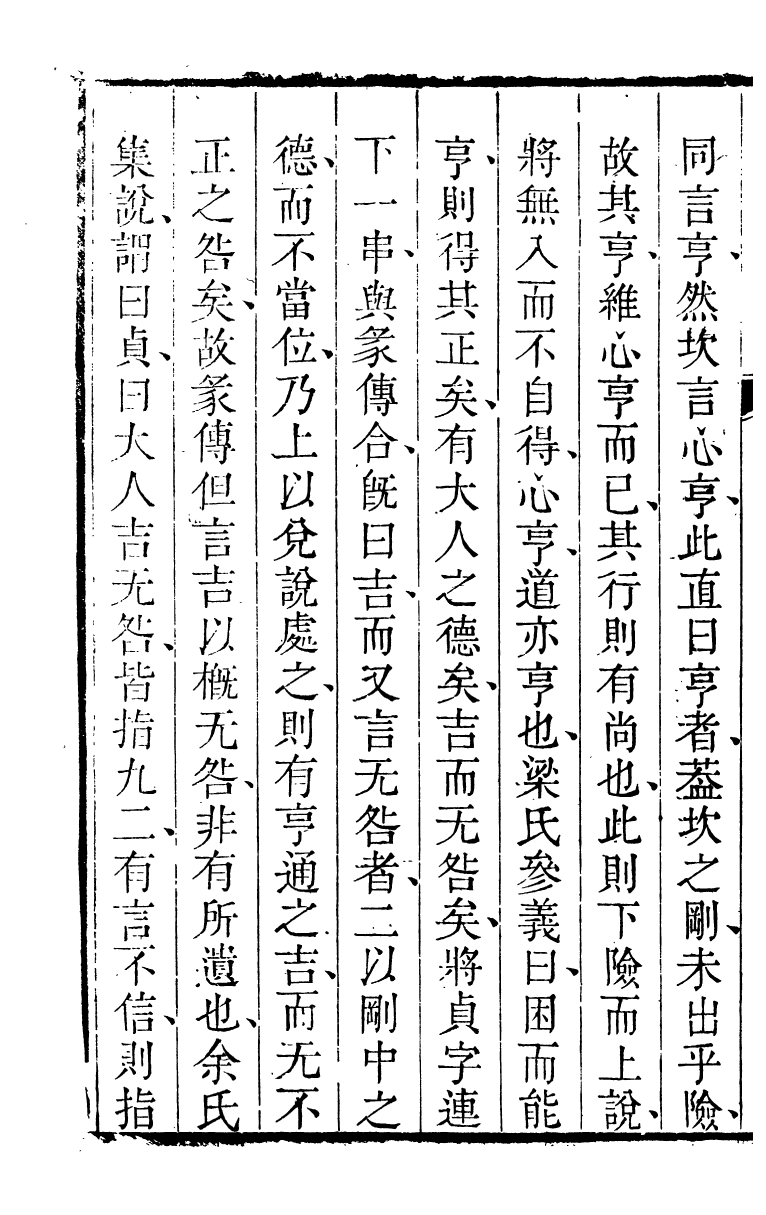 同言亨、然坎言心亨、此直曰亨者、葢坎之剛、未出乎險、
故其亨、維心亨而已、其行則有尚也、此則下險而上說、
將無入而不自得、心亨、道亦亨也、梁氏參義曰、困而能
亨、則得其正矣、有大人之德矣、吉而无咎矣、將貞字連
下一串、與彖傳合、旣曰吉、而又言无咎者、二以剛中之
德、而不當位、乃上以兌說處之、則有亨通之吉、而无不
正之咎矣、故彖傳但言吉以槪无咎、非有所遺也、余氏
集說、謂曰貞、曰大人吉无咎、皆指九二、有言不信、則指